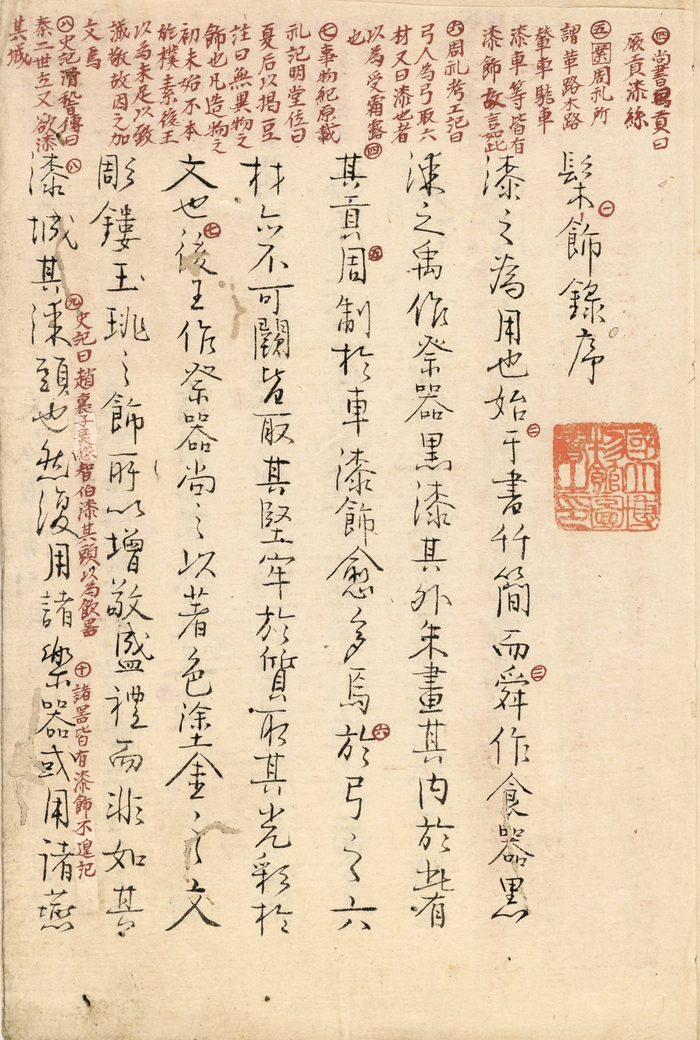 ㊃尚書禹貢曰
厥貢漆絲
㊄周礼所
謂革路木路
輦車駹車
漆車等皆有
漆飾故言如此
㊅周礼考工記曰
弓人為弓取六
材又曰漆也者
以為受霜露
也
㊆事物紀原載
礼記明堂位曰
夏后以楬豆
註曰無異物之
飾也凡造物之
初未始不本
於樸素後王
以為未足以致
誠敬故因之加
文焉
㊇史記滑稽傳曰
秦二世立又欲漆
其城
髹㊀飾錄序
國立博
物館圖
書之印
漆之為用也始㊁于書竹簡而舜㊂作食器黑
漆之禹作祭器黑漆其外朱畫其內於此有
㊃其貢周㊄制於車漆飾愈多焉㊅於弓之六
材亦不可闕皆取其堅牢於質取其光彩於
文也㊆後王作祭器尚之以著色塗金之文
彫鏤玉珧之飾所以增敬盛禮而非如其
㊇漆城其㊈漆頭也然復用諸樂㊉器或用諸燕
㊈史記曰趙襄子怨智伯漆其頭以為飲器
㊉諸器皆有漆飾不遑記